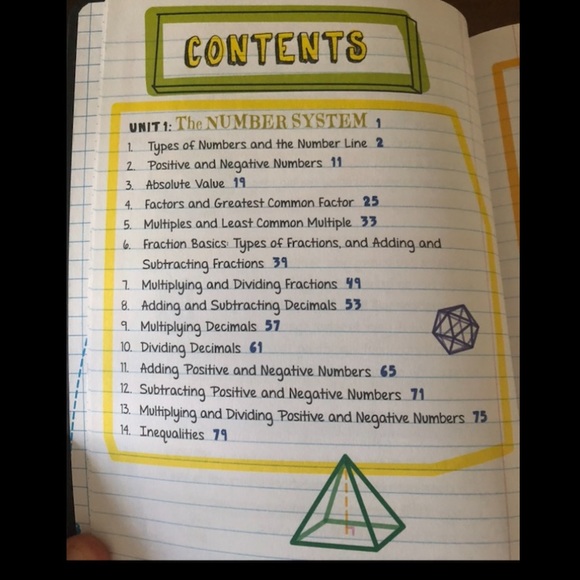 CONTENTS
UNIT 1: The NUMBER SYSTEM 1
1. Types of Numbers and the Number Line 2
2. Positive and Negative Numbers 11
3. Absolute Value 19
4. Factors and Greatest Common Factor 25
5. Multiples and Least Common Multiple 33
6. Fraction Basics: Types of Fractions, and Adding and
Subtracting Fractions 39
7. Multiplying and Dividing Fractions 49
8. Adding and Subtracting Decimals 53
9. Multiplying Decimals 57
10. Dividing Decimals 61
11. Adding Positive and Negative Numbers 65
12. Subtracting Positive and Negative Numbers 71
13. Multiplying and Dividing Positive and Negative Numbers 75
14. Inequalities 79